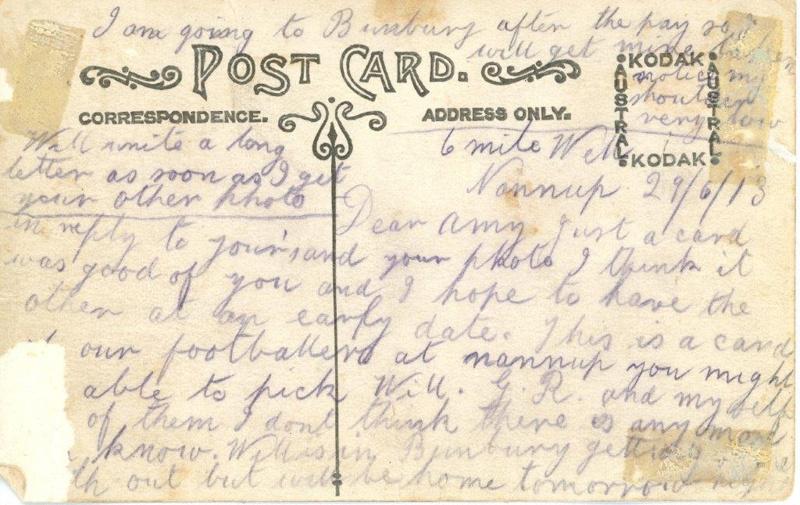 I am going to Bunbury after the pay so
will get mine taken
notice my
shoulder
very low
POST CARD.
CORRESPONDENCE.
ADDRESS ONLY.
KODAK
AUSTRAL
AUSTRAL
KODAK
Will write a long
letter as soon as I get
your other photo
6 mile Well
Nannup 29/6/13
Dear Amy Just a card
in reply to your's and your photo I think it
was good of you and I hope to have the
other at an early date. This is a card
our footballers at nannup you might
able to pick Will. G. R. and myself
of them I dont think there is any more
know. Will is in Bunbury getting
th out but will be home tomorrow night